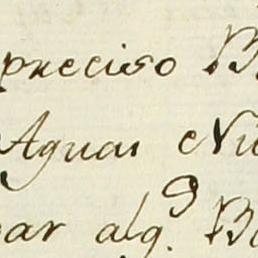 preciso B
Aguas Ni
par alg.º Ba